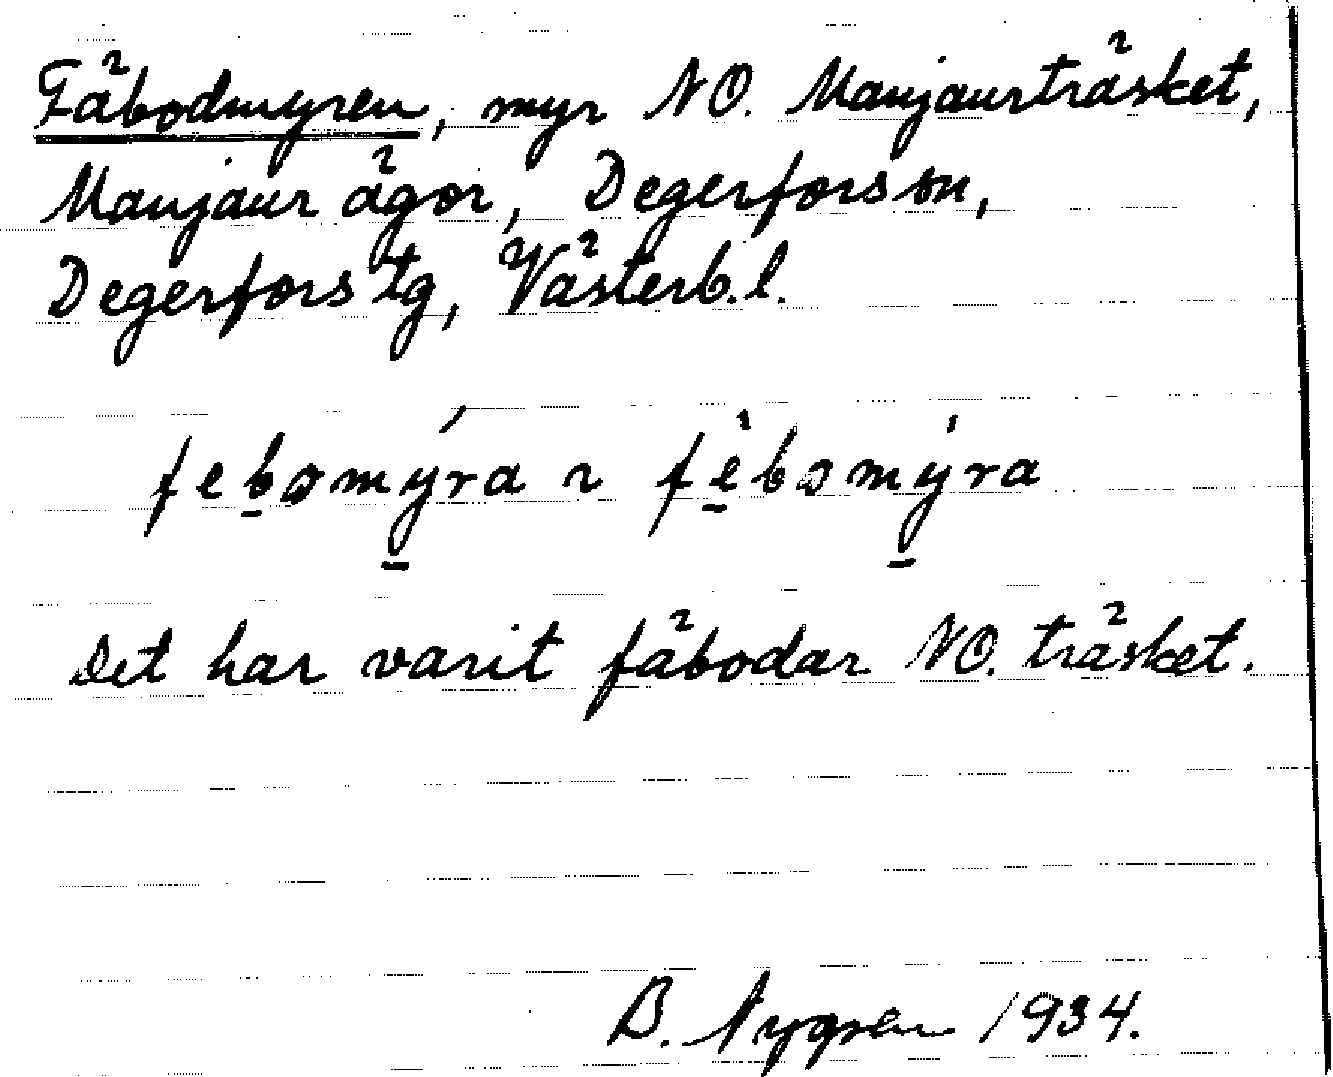 Fäbodmyren, myr NO. Manjaurträsket,
Manjaur ägor, Degerfors sn,
Degerfors tg, Västerb. l.
febomýra ~ fèbomýra
Det har varit fäbodar NO. träsket.
B. Nygren 1934.